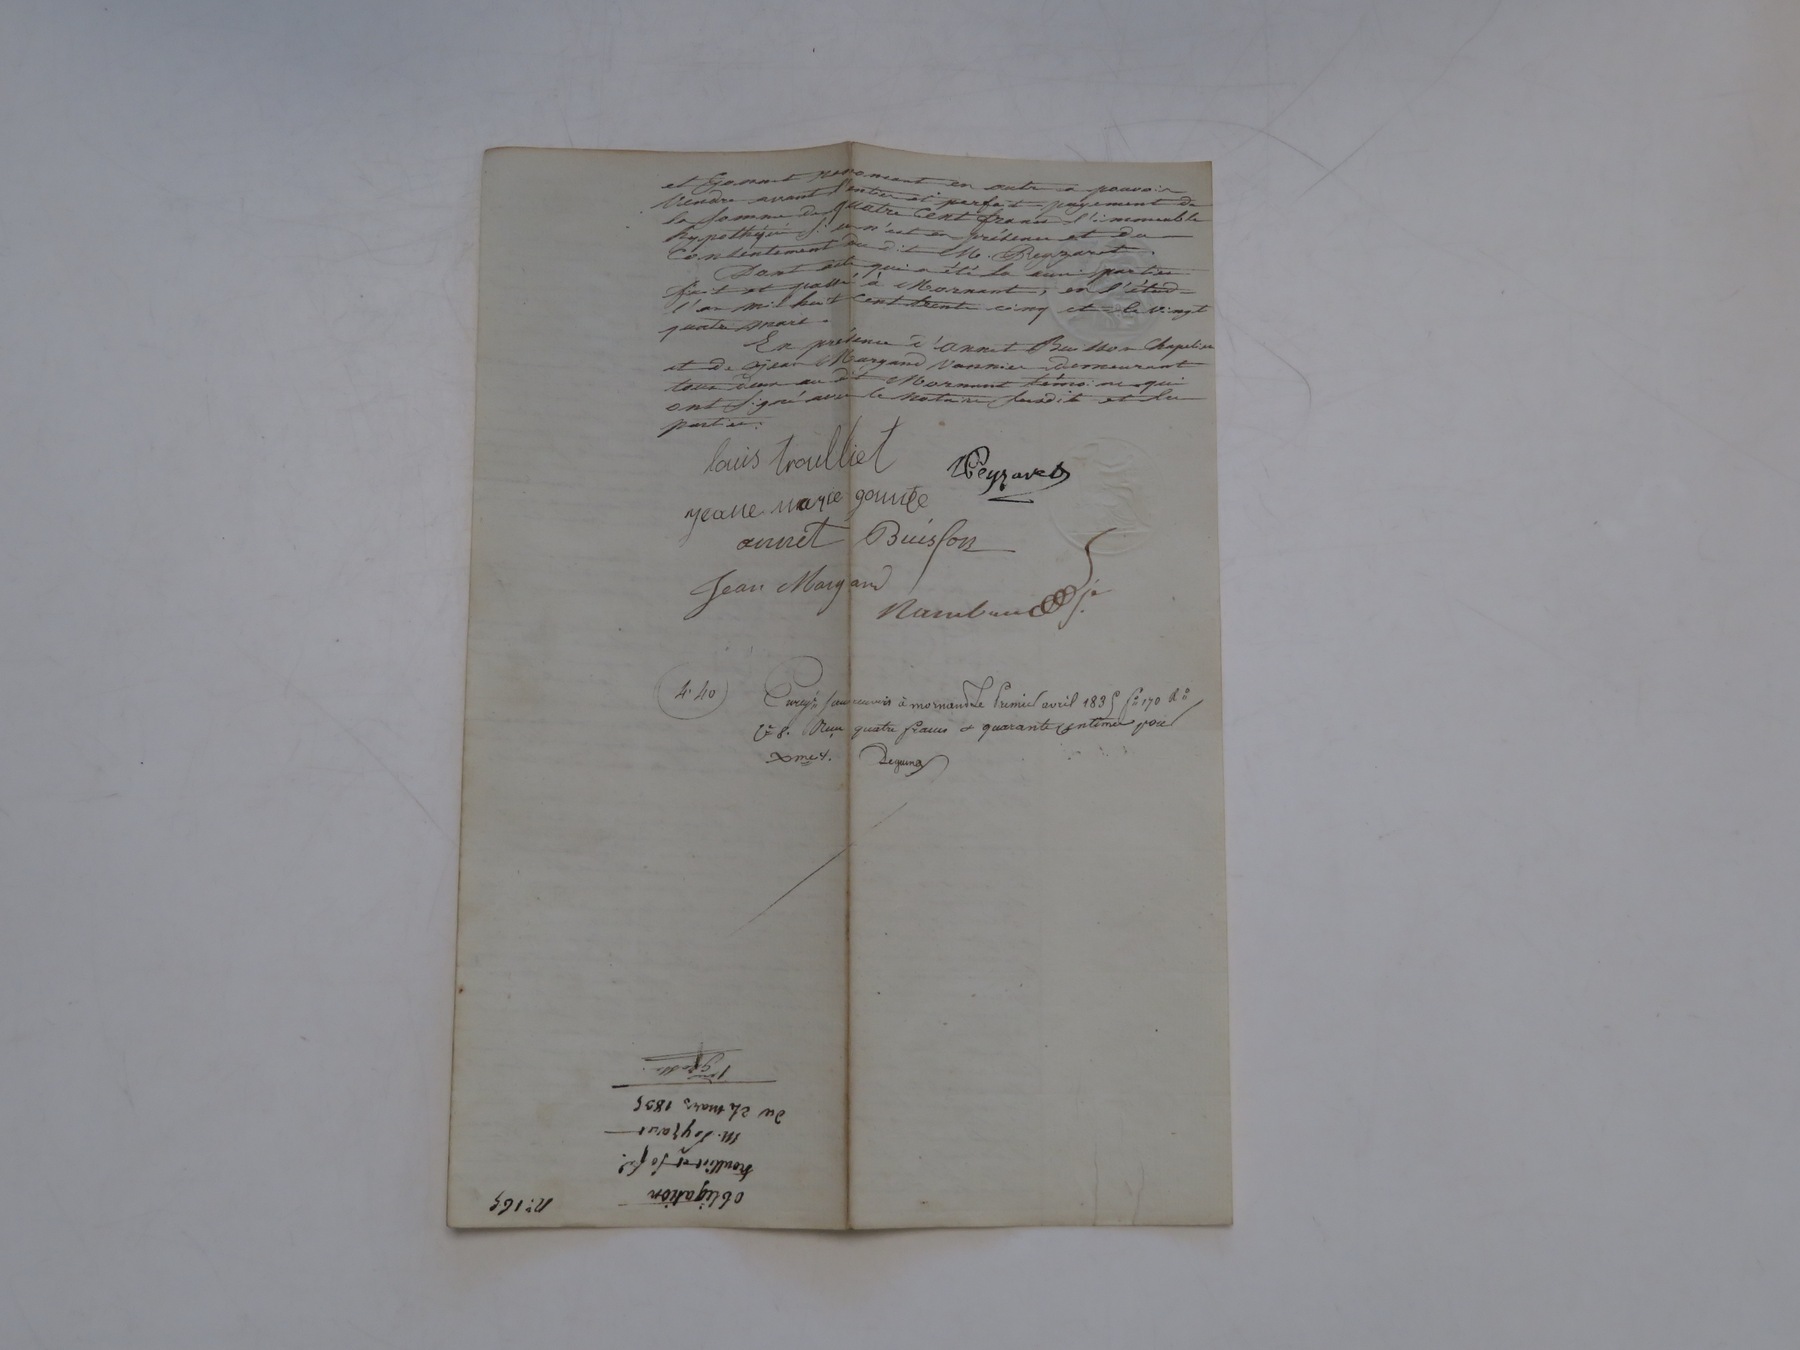 et Gonnet ne pouvant en outre
vendre avant l'entier et parfait payement de
la somme de quatre cent francs l'immeuble
hypothéqué si ce n'est en présence et du
Consentement du dit M. Peyzaret.
Dont acte qui a été lu aux parties
fait et passé à Mornant, en l'étude
l'an mil huit cent trente cinq et le vingt
quatre mars.
En présence d'annet Buisson Chapelier
et de jean Margand Vannier demeurant
tous deux au dit Mornant témoins qui
ont signé avec le notaire susdit et les
parties.
louis troulliet
Peyzaret
jeane marie gounde
annet Buisson
Jean Margand
4. 40
à mornand le Premier avril 1835 f° 170 R°
Ce 8. Reçu quatre francs & quarante centimes pour
Xme.
obligation
troulliet et
M. Peyzaret
du 24 mars 1835
N° 165